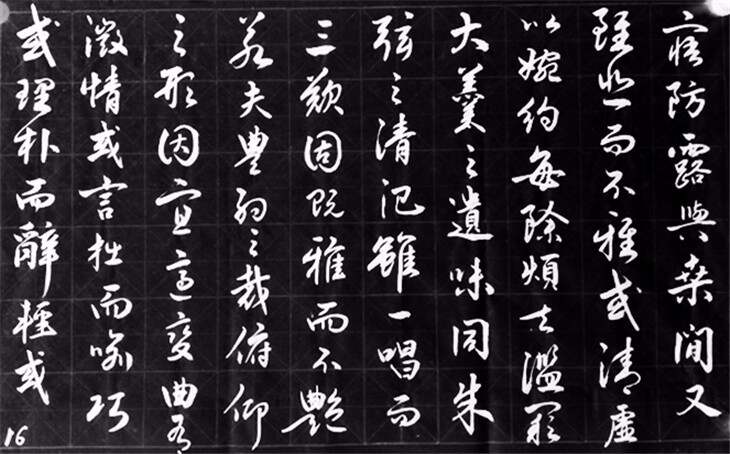 寤防露與桑間又
雖悲而不雅或清虛
以婉約每除煩去濫闕
大羹之遺味同朱
弦之清氾雖一唱而
三歎固既雅而不艷
若夫豐約之裁俯仰
之形因宜適變曲有
微情或言拙而喻巧
或理朴而辭輕或
16